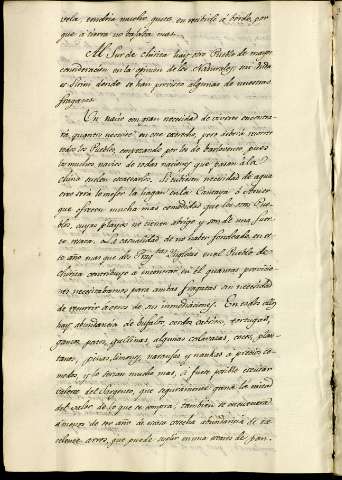 vela, tendria mucho gusto en recibirlo á bordo, por
que á tierra no bajaba mas.
Al Sur de Chirica hay otro Pueblo de mayor
consideracion en la opinion de los Naturales, su
es Sirin donde se han provisto algunas de nuestras
fragatas.
Un navio con gran necesidad de viveres encontra-
rá quanto necesite en este estrecho, pero deberá correr
todos los Pueblos, empezando por los de barlovento, pues
los muchos navios de todas naciones que pasan á la
China suelen escasearlos. Si tubiesen necesidad de agua
creo será lo mejor la hagan en la Cantaya ó Anier
que ofrecen mucha mas comodidad que los otros Pue-
blos, cuyas playas no tienen abrigo y son de una fuer-
te resaca. La casualidad de no haber fondeado en es-
te año mas que dos Frag.tas Inglesas en el Pueblo de
Chirica contribuyó á encontrar en él quantas provisio-
nes necesitabamos para ambas fragatas sin necesidad
de recurrir á otros de sus inmediaciones. En todos ellos
hay abundancia de bufalos, cerdos, cabritos, tortugas,
gansos, patos, gallinas, algunas calabazas, cocos, plan-
tanos, piñas, limones, naranjas y mankas á precios co-
modos, y lo serian mucho mas, si fuese posible evitar
valerse del Sargento, que seguramente gana la mitad
del valor de lo que se compra; tambien se encuentra
á menos de ser año de escasa cosecha abundancia de ex-
celente arroz, que puede suplir en una travesia de pan.